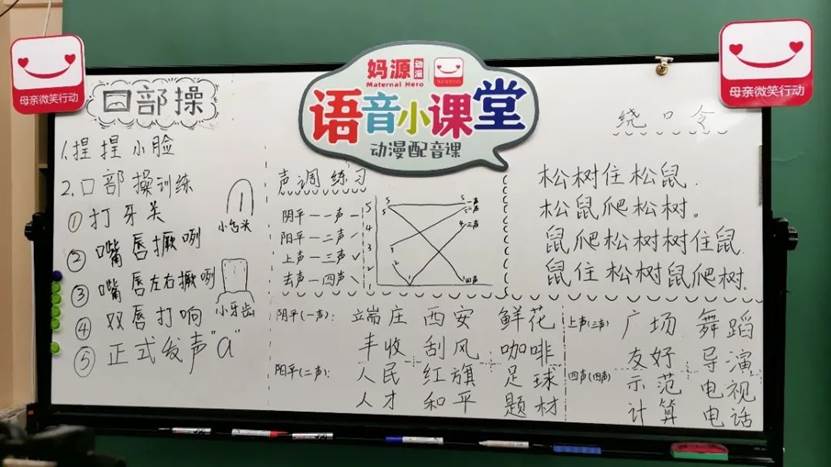 母亲微笑行动
妈源 动漫
Maternal Hero
语音小课堂
动漫配音课
母亲微笑行动
口部操
1.捏捏小脸
2.口部操训练
①打牙关
②嘴唇撅咧
③嘴唇左右撅咧
④双唇打响
⑤正式发声"a"
小舌头
小牙齿
声调练习
阴平——一声
阳平——二声
上声——三声
去声——四声
5
4
3
2
1
一声
二声
四声
绕口令
松树住松鼠.
松鼠爬松树。
鼠爬松树树住鼠.
鼠住松树鼠爬树.
阴平(一声):
端庄 西安 鲜花
丰收 刮风 咖啡
阳平(二声):
人民 红旗 足球
人才 和平 题材
上声(三声)
广场 舞蹈
友好 导演
四声(四声)
示范 电视
计算 电话